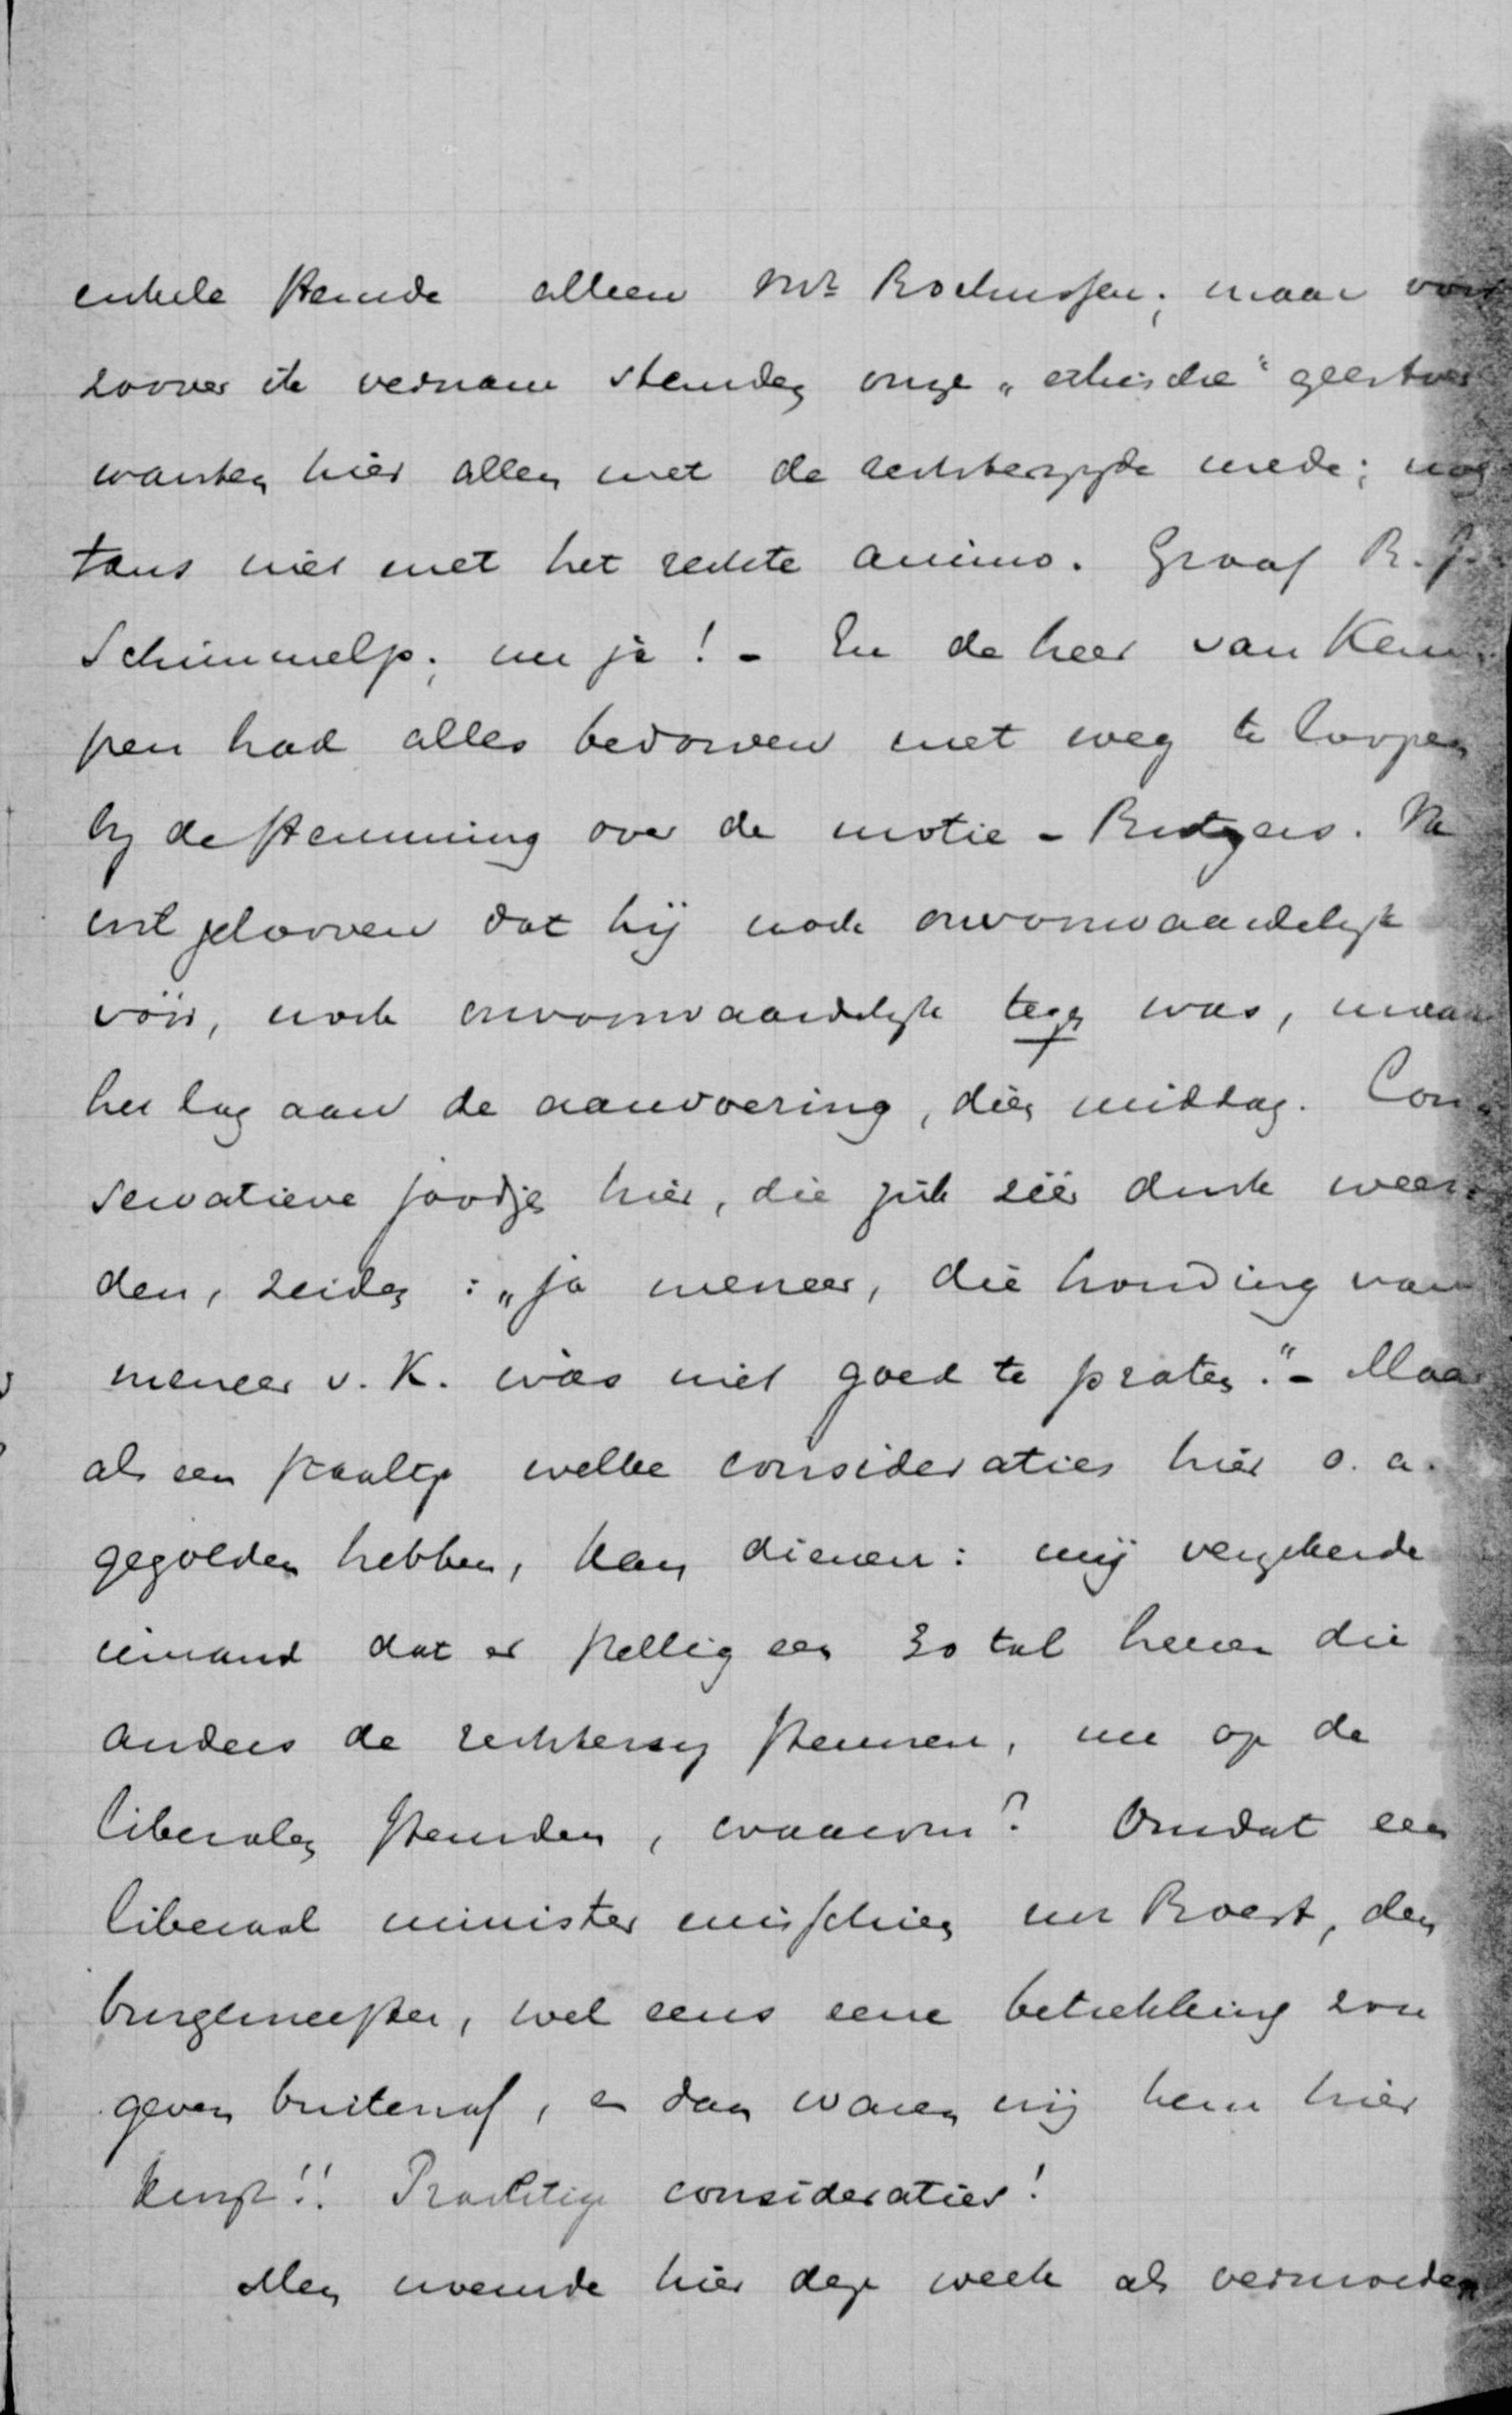 enkele stemde alleen Mr Rochussen; maar voor
zoover ik vernam stemden onze „ethische" geestver
wanten hier allen met de rechterzijde mede; nog
tans niet met het rechte animo. Graaf R. J.
Schimmelp; nu ja! - En de heer van Kem
pen had alles bedorven met weg te loopen
bij de stemming over de motie - Rutgers. Ik
wil gelooven dat hij noch onvoorwaardelijk
vóór, noch onvoorwaardelijk tegen was, maar
het lag aan de aanvoering, dien middag. Con-
servatieve joodjes hier, die zich zéér druk weer-
den, zeiden: „ja meneer, die houding van
meneer v. K. was niet goed te praten." - Maar
als een staaltje welke consideraties hier o. a.
gegolden hebben, kan dienen: mij verzekerde
iemand dat er stellig een 30 tal heeren die
anders de rechterzij steunen, nu op de
liberalen stemden, waarom? Omdat een
liberaal minister misschien mr Roest, den
burgemeester, wel eens eene betrekking zou
geven buitenaf, en dan waren wij hem hier
kwijt!! Prachtige consideraties!
Men noemde hier deze week als vermoeden